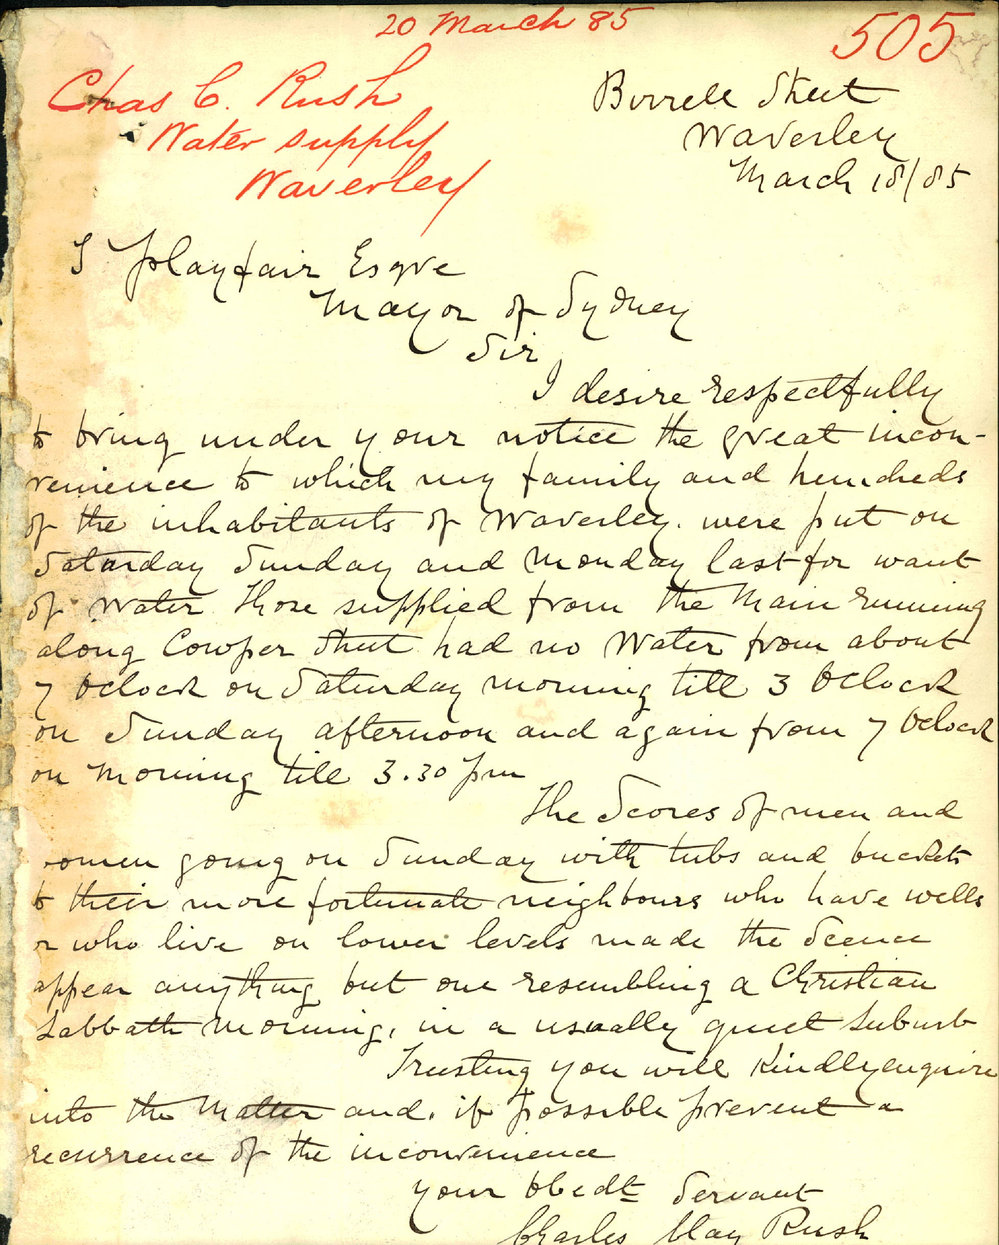 20 March 85
505
Chas C. Rush
Water supply
Waverley
Birrell Street
Waverley
March 18/85
T Playfair Esqre
Mayor of Sydney
Sir
I desire respectfully
to bring under your notice the great incon-
venience to which my family and hundreds
of the inhabitants of Waverley. were put on
Saturday Sunday and Monday last for want
of Water Those supplied from the Main running
along Cowper Street had no Water from about
7 Oclock on Saturday morning till 3 Oclock
on Sunday afternoon and again from 7 Oclock
on Morning till 3.30 pm
The Scores of men and
women going on Sunday with tubs and buckets
to their more fortunate neighbours who have wells
or who live on lower levels made the Scene
appear anything but one resembling a Christian
Sabbath Morning, in a usually quiet Suburb
Trusting you will Kindly enquire
into the Matter and. if possible prevent a
recurrence of the inconvenience
your Obedt Servant
Charles Clay Rush